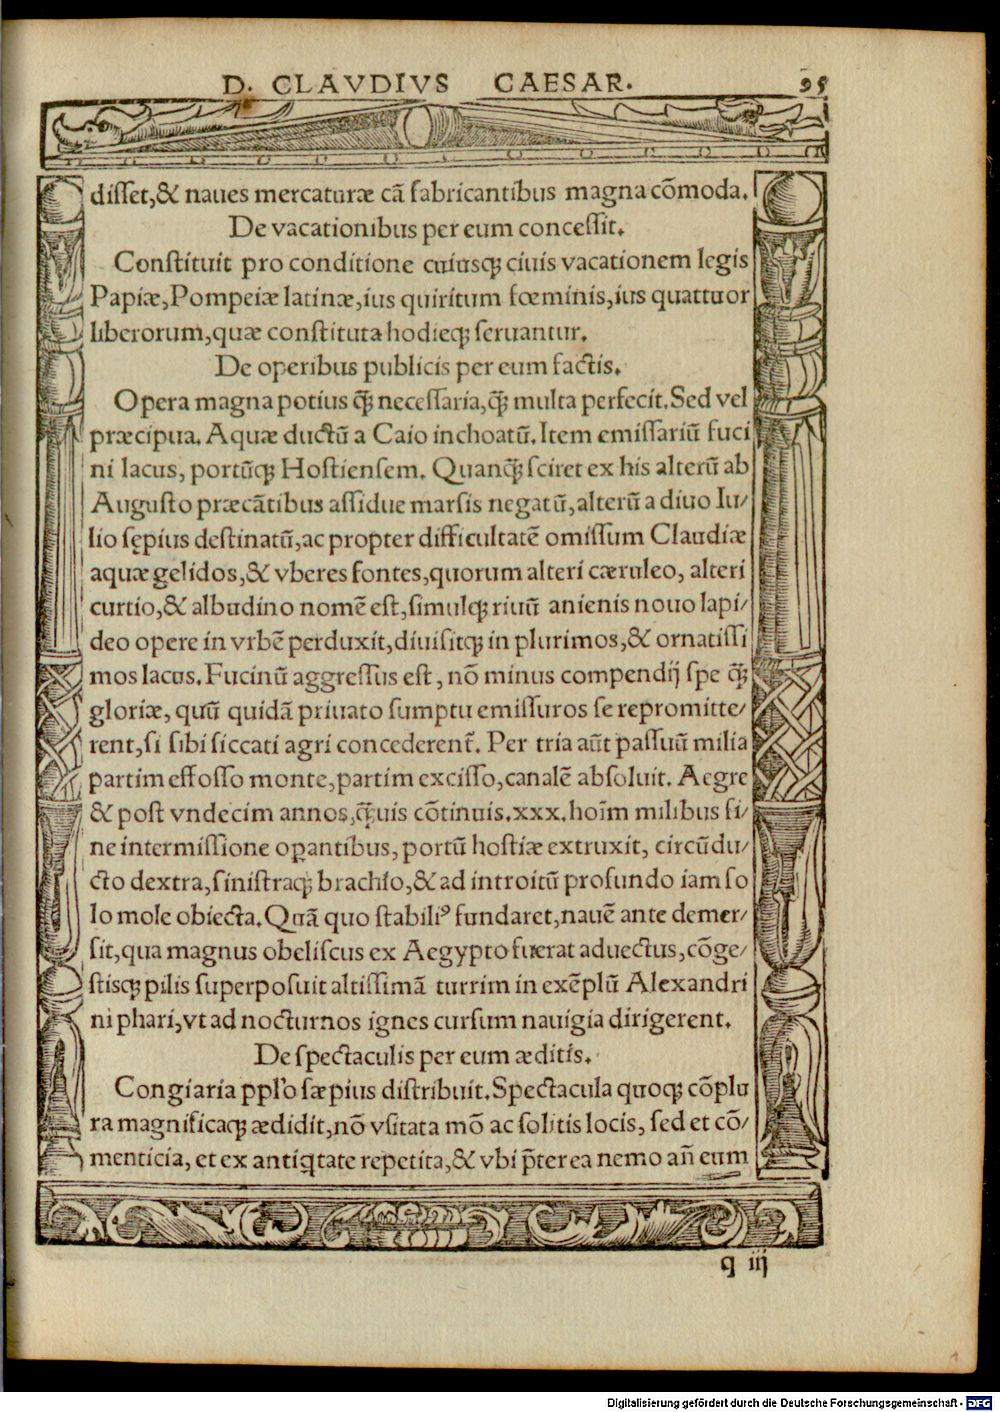 D. CLAVDIVS CAESAR. 95
disset,& naues mercaturæ cā fabricantibus magna cōmoda.
De vacationibus per eum concessit.
Constituit pro conditione cuiusq; ciuis vacationem legis
Papiæ,Pompeiæ latinæ,ius quiritum fœminis,ius quattuor
liberorum,quæ constituta hodieq; seruantur.
De operibus publicis per eum factis.
Opera magna potius q̃; necessaria,q̃; multa perfecit.Sed vel
præcipua. Aquæ ductū a Caio inchoatū. Item emissariū fuci
ni lacus, portūq; Hostiensem. Quanq̃; sciret ex his alterū ab
Augusto præcātibus assidue marsis negatū,alterū a diuo Iu/
lio sępius destinatū,ac propter difficultatē omissum Claudiæ
aquæ gelidos,& vberes fontes,quorum alteri cæruleo, alteri
curtio,& albudino nomē est,simulq; riuū anienis nouo lapi/
deo opere in vrbē perduxit,diuisitq; in plurimos,& ornatissi
mos lacus. Fucinū aggressus est, nō minus compendij spe q̃;
gloriæ, quū quidā priuato sumptu emissuros se repromitte/
rent,si sibi siccati agri concederent̃. Per tria aūt passuū milia
partim effosso monte,partim excisso,canalē absoluit. Aegre
& post vndecim annos,q̃;uis cōtinuis.xxx.hoīm milibus si/
ne intermissione oꝑantibus, portū hostiæ extruxit, circūdu/
cto dextra,sinistraq; brachio,& ad introitū profundo iam so
lo mole obiecta. Quā quo stabiliꝰ fundaret,nauē ante demer/
sit,qua magnus obeliscus ex Aegypto fuerat aduectus,cōge/
stisq; pilis superposuit altissimā turrim in exēplū Alexandri
ni phari,vt ad nocturnos ignes cursum nauigia dirigerent.
De spectaculis per eum æditis.
Congiaria ppl'o sæpius distribuit. Spectacula quoq; cōplu
ra magnificaq; ædidit,nō vsitata mō ac solitis locis, sed et cō/
menticia, et ex antiq̃tate repetita,& vbi p̃ter ea nemo añ eum
q iij
Digitalisierung gefördert durch die Deutsche Forschungsgemeinschaft - DFG